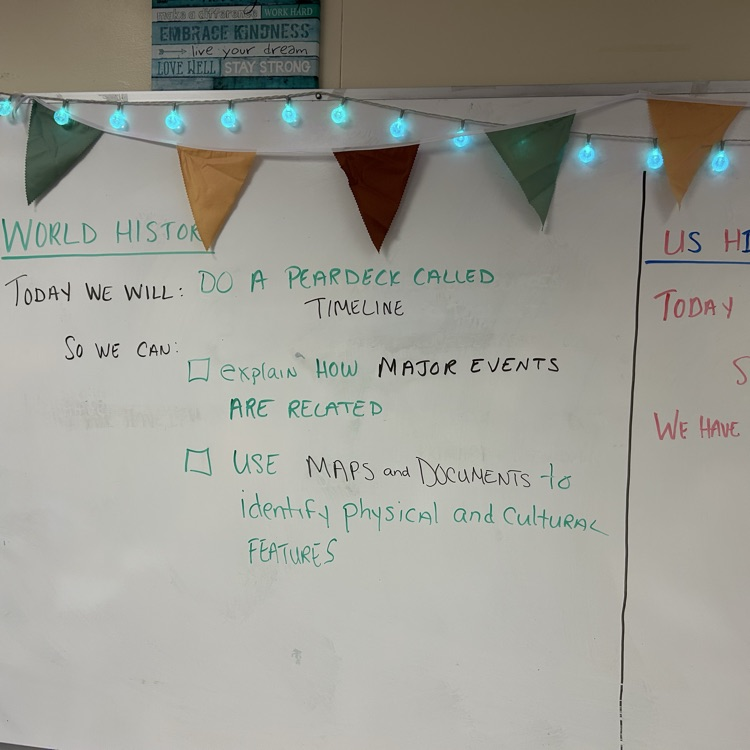 make a difference WORK HARD
EMBRACE KINDNESS
live your dream
LOVE WELL STAY STRONG
WORLD HISTOR
TODAY WE WILL: DO A PEARDECK CALLED
TIMELINE
SO WE CAN:
explain HOW MAJOR EVENTS
ARE RELATED
USE MAPS and DOCUMENTS to
identify physical and CULTURAL
FEATURES
US HI
TODAY
S
WE HAVE